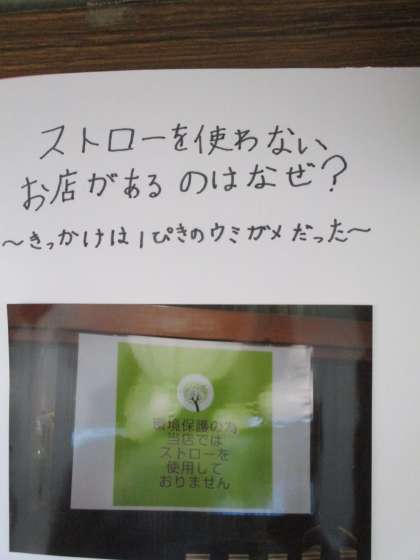 ストローを使わない
お店があるのはなぜ?
〜きっかけは1ぴきのウミガメだった〜
環境保護の為
当店では
ストローを
使用して
おりません